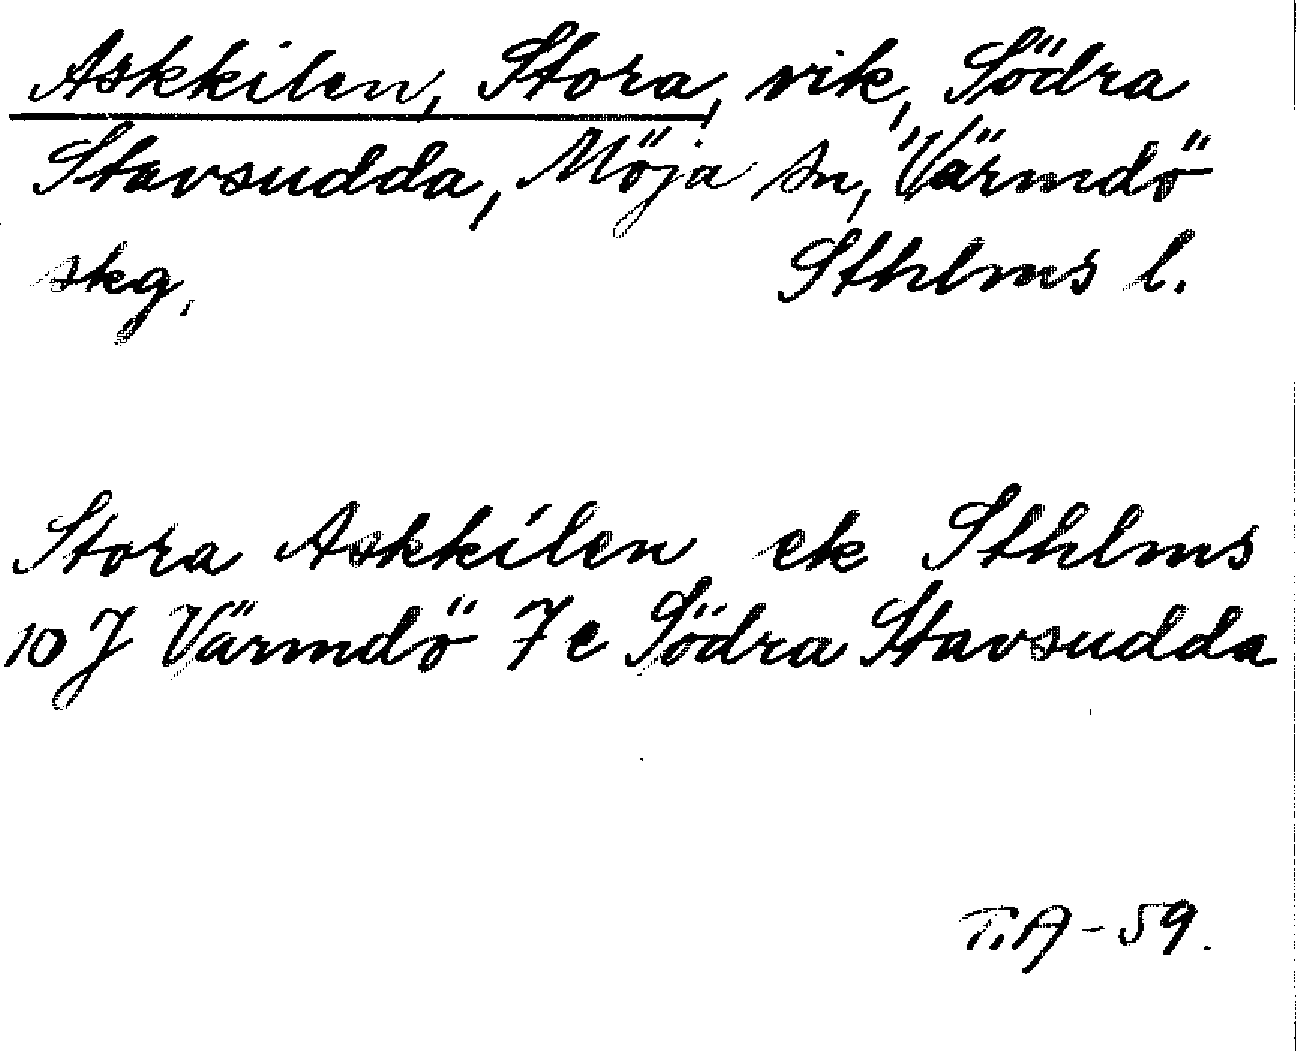 Askkilen, Stora, vik, Södra
Stavsudda, Möja sn, Värmdö
skg. Sthlms l.
Stora Askkilen ek Sthlms
10 J Värmdö 7 e Södra Stavsudda
T.A - 59.